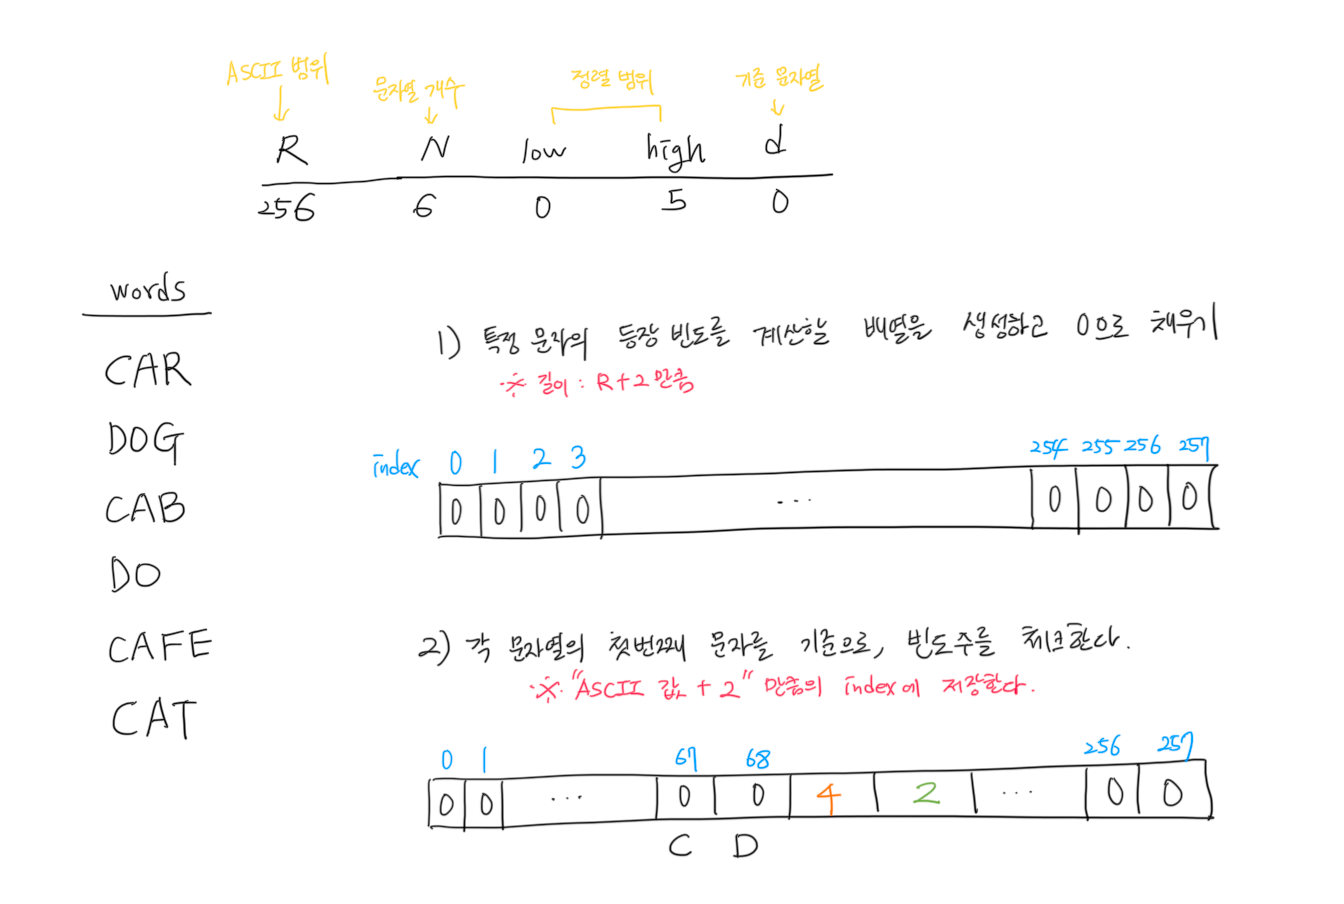 ASCII 범위 문자열 개수 정렬 범위 기준 문자열
R N low high d
256 6 0 5 0
words
CAR
DOG
CAB
DO
CAFE
CAT
1) 특정 문자의 등장 빈도를 계산할 배열을 생성하고 0으로 채우기
※ 길이 : R+2 만큼
index 0 1 2 3 254 255 256 257
0 0 0 0 ... 0 0 0 0
2) 각 문자열의 첫번째 문자를 기준으로, 빈도수를 체크한다.
※ "ASCII 값 + 2" 만큼의 index에 저장한다.
0 1 67 68 256 257
0 0 ... 0 0 4 2 ... 0 0
C D